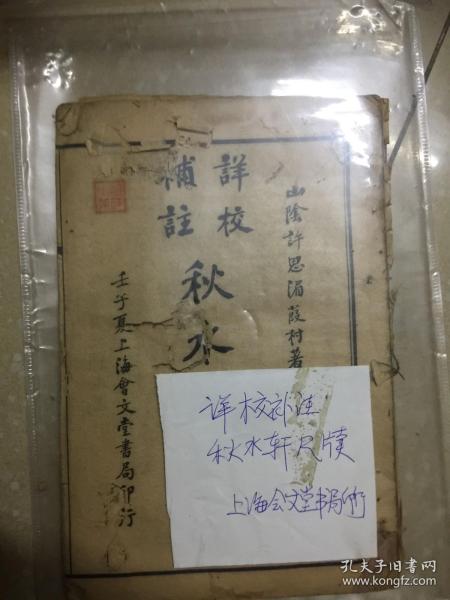 山陰許思湄葭村著
詳校
補註
秋水
壬子夏上海會文堂書局印行
详校补注
秋水轩尺牍
上海会文堂书局印
孔夫子旧书网
www.kongfz.com